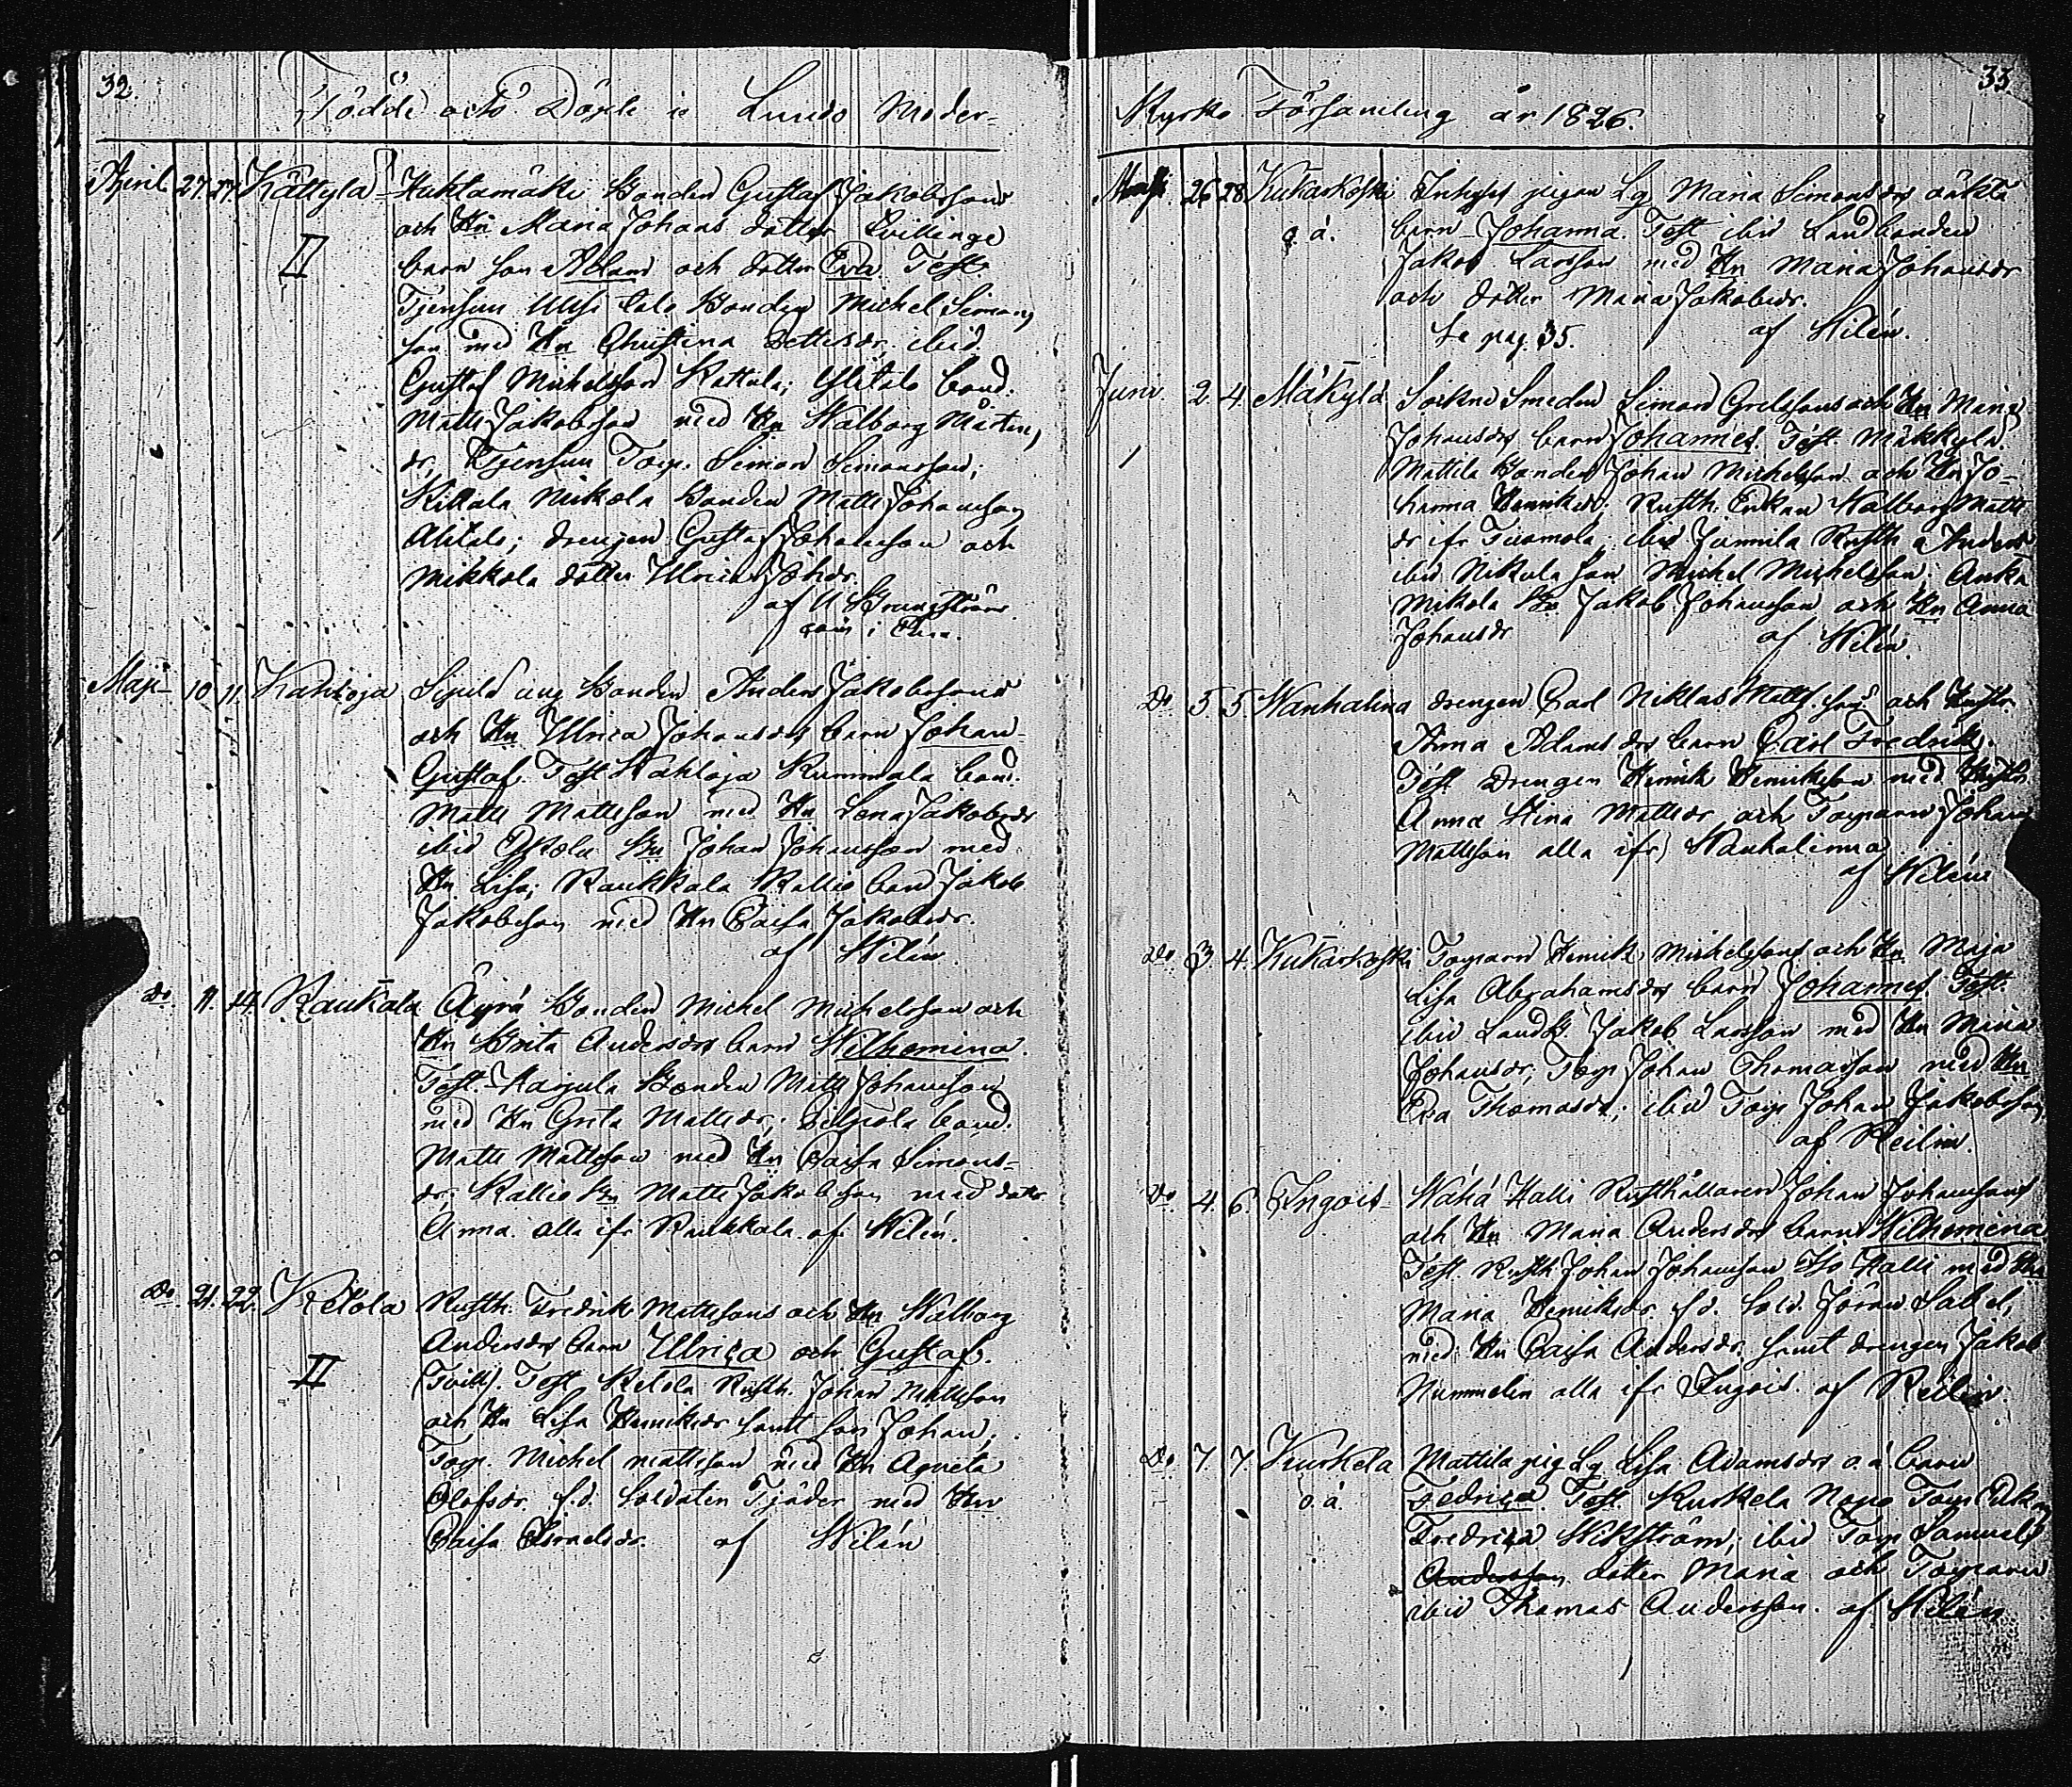 32.
Födde och Döpte i Lundo Moder=
April 27. 27. Kättylä Huktamäki Bonden Gustaf Jakobssons
och Hn Maria Johans dotter Tvillinge
II barn son Adam och dotter Eva. Test
Bonden Michel Simons
son med Hn Christina ibid
Gustaf Michelsson Kattula; Ylitalo bond.
Matts Jakobsson med Hn Walborg Mårtens
dr, Torp. Simon Simonsson;
Killala Mikola Bonden Matts Johansson
Alitalo; drengen Gustaf Johansson och
Mikkola dotter Ulrica Johsdr.
af
Maji 10. 11. Kahloja Bonden Anders Jakobssons
och Hn Ulrica Johansdrs barn Johan
Gustaf. Test Kahloja Rummala bond.
Matts Mattsson med Hn Lena Jakobsdr
ibid Bn Johan Johansson med
Hn Lisa; Raukkala Kallio bond Jakob
Jakobsson med Hn Caisa Jakobsdr.
af Wilén
Do 11. 14. Raukala Äyrä Bonden Michel Michelsson och
Hn Brita Andersdrs barn Wilhemina.
Test. Karjula Bonden Matts Johansson
med Hn Greta Mattsdr; bond.
Matts Mattsson med Hn Caisa Simons-
dr; Kallio Bn Matts Jakobsson med dottr
Anna alla ifr Raukkala af Wilén.
Do 21. 22. Ketola Rusth. Fredrik Mattssons och Hn Walborg
Andersdrs barn Ulrica och Gustaf.
II (Tvill). Test Ketola Rusth. Johan Mattsson
och Hn Lisa Henriksdr samt son Johan;
Torp. Michel Mattsson med Hn Agneta
Olofsdr f.d. Soldaten Tjäder med Hn
Caisa Israelsdr. af Wilén
33
Kyrko Församling år 1826.
Maji. 26 28. Kukarkoski Inhyses pigan Lg Maria Simonsdrs oäkta
o. ä. barn Johanna. Test ibid Landbonden
Jakob Larsson med Hn Maria Johansdr
och dotter Maria Jakobsdr.
Se pag. 35. af Wilén.
Juni. 2. 4. Mäkylä Sockne Smeden Simon Grelssons och Hn Maria
Johansdrs barn Johannes. Test. Mäkkylä
Mattila Bonden Johan Michelsson och Hn Jo-
hanna Henriksdr; Rusth. Enkan Walborg Matts
dr ifr Tuomola; ibid Junnila Rusth a Anders
ibid Nikula son Michel Michelsson; Anka
Mikola Bn Jakob Johansson och Hn Anna
Johansdr af Wilén.
Do. 5. 5. Wanhalina drengen Carl Niklas Matts son och Hustr
Anna Adams drs barn Carl Fredrik.
Test drengen Henrik Henriksson med Hustr
Anna Stina Mattsdr och Torparen Johan
Mattsson alla ifr Wanhalinna
af Wilén
Do 3 4. Kukarkoski Torparn Henrik Michelssons och Hn Maja
Lisa Abrahamsdrs barn Johannes. Test.
ibid Landb Jakob Larsson med Hn Maria
Johansdr; Torp Johan Thomasson med Hn
Eva Thomasdr; ibid Torp Johan Jakobsson
af Reilin.
Do. 4. 6. Ingois Wähä Halli Rusthållaren Johan Johanssons
och Hn Maria Andersdrs barn Wilhemina
Test. Rusth Johan Johansson Iso Halli med Hn
Maria Henriksdr f.d. Sold. Jöran Sabel,
med Hn Caisa Andersdr; samt drengen Jakob
Nummelin alla ifr Ingois. af Reilin.
Do 7. 7. Kurkela Mattila pig Lg Lisa Adamsdrs o.ä barn
o.ä. Fedrica. Test Kurkela Nopo Torp Enk
Fredrica Wikström; ibid Torp Samuels
Andersson dotter Maria och Torparen
ibid Thomas Andersson. af Wilén